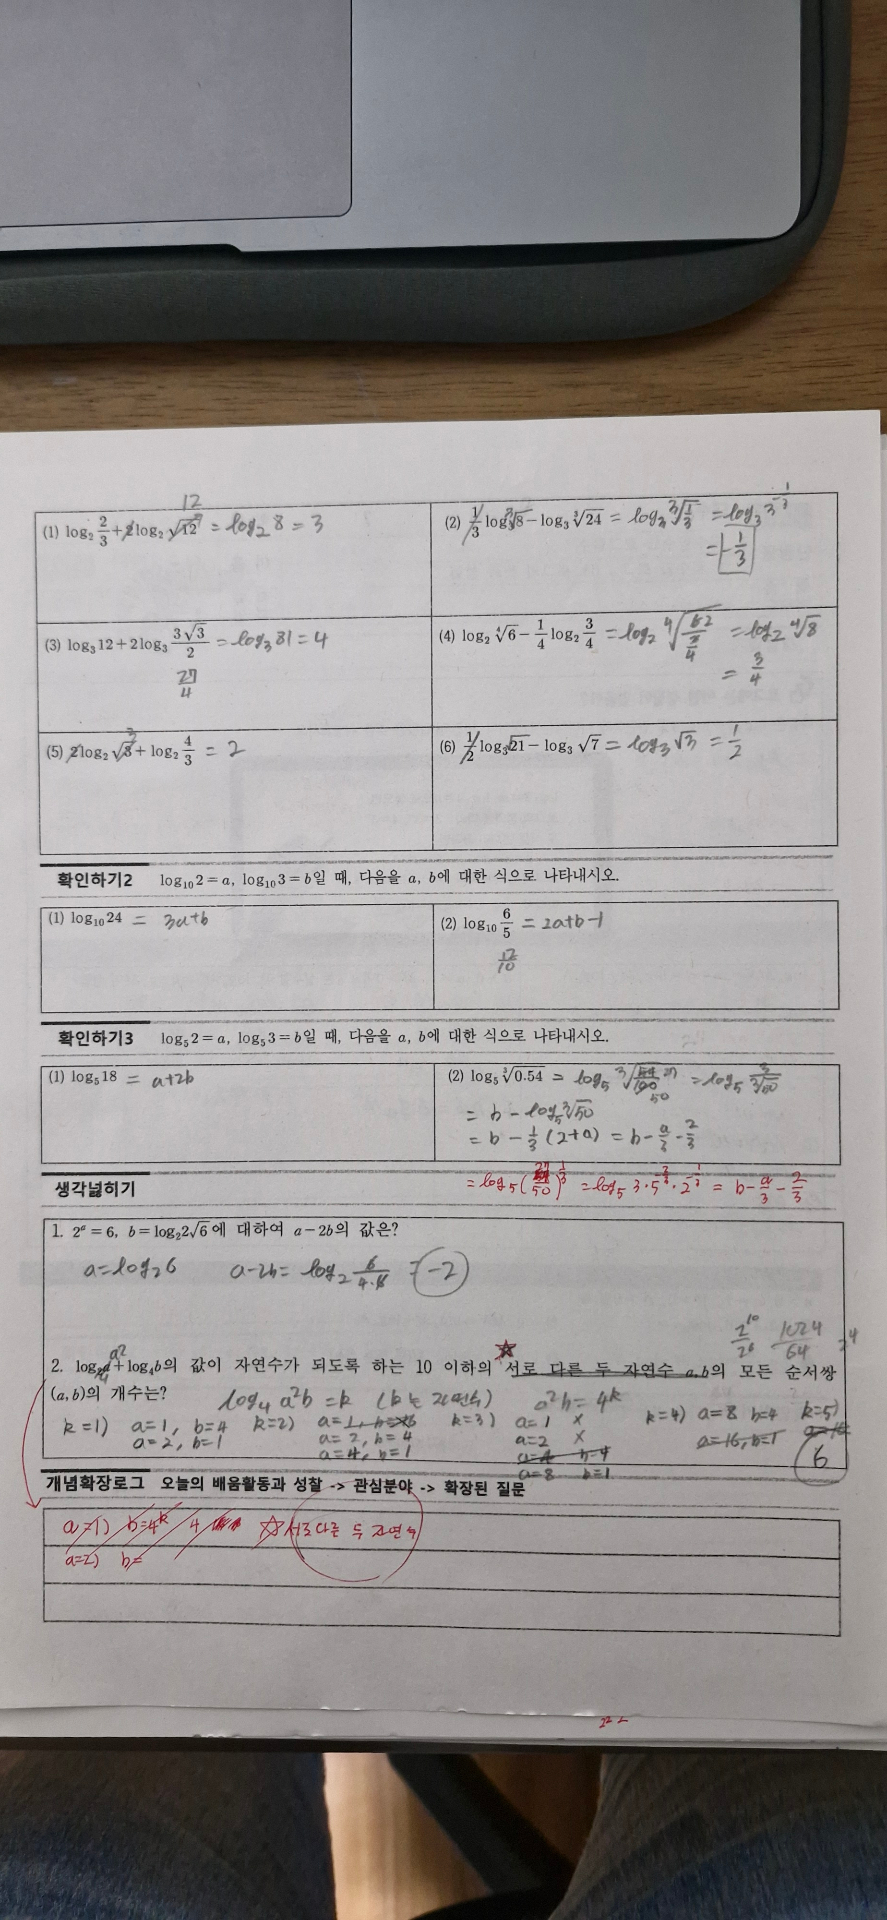 12
(1) log₂ 2/3 + 2log₂ √12 = log₂ 8 = 3
(2) 1/3 log₃ ∛8 − log₃ ∛24 = log₃ ∛(1/3) = log₃ 3^(-1/3)
= -1/3
(3) log₃ 12 + 2log₃ 3√3/2 = log₃ 81 = 4
27/4
(4) log₂ ⁴√6 − 1/4 log₂ 3/4 = log₂ ⁴√(6/(3/4)) = log₂ ⁴√8
= 3/4
(5) 2log₂ √3 + log₂ 4/3 = 2
(6) 1/2 log₃ √21 − log₃ √7 = log₃ √3 = 1/2
확인하기2 log₁₀ 2 = a, log₁₀ 3 = b일 때, 다음을 a, b에 대한 식으로 나타내시오.
(1) log₁₀ 24 = 3a+b
(2) log₁₀ 6/5 = 2a+b−1
12/10
확인하기3 log₅ 2 = a, log₅ 3 = b일 때, 다음을 a, b에 대한 식으로 나타내시오.
(1) log₅ 18 = a+2b
(2) log₅ ∛0.54 = log₅ ∛(54/100) 27 50 = log₅ 3/∛50
= b − log₅ ∛50
= b − 1/3 (2+a) = b − a/3 − 2/3
= log₅ (27/50)^(1/3) = log₅ 3·5^(-2/3)·2^(-1/3) = b − a/3 − 2/3
생각넓히기
1. 2ᵃ = 6, b = log₂ 2√6 에 대하여 a−2b의 값은?
a = log₂ 6 a−2b = log₂ 6/(4·6) = -2
2¹⁰/2⁶ 1024/64 2⁴
a²
2. log₂ a + log₄ b의 값이 자연수가 되도록 하는 10 이하의 서로 다른 두 자연수 a, b의 모든 순서쌍
(a, b)의 개수는? log₄ a²b = k (k는 자연수) a²b = 4ᵏ
k=1) a=1, b=4 k=2) a=1, b=16 k=3) a=1 × k=4) a=8 b=4 k=5)
a=2, b=1 a=2, b=4 a=2 × a=16, b=1 a=16
a=4, b=1 a=4 b=4 6
a=8 b=1
개념확장로그 오늘의 배움활동과 성찰 -> 관심분야 -> 확장된 질문
a=1) b=4ᵏ 4 ☆서로 다른 두 자연수
a=2) b=